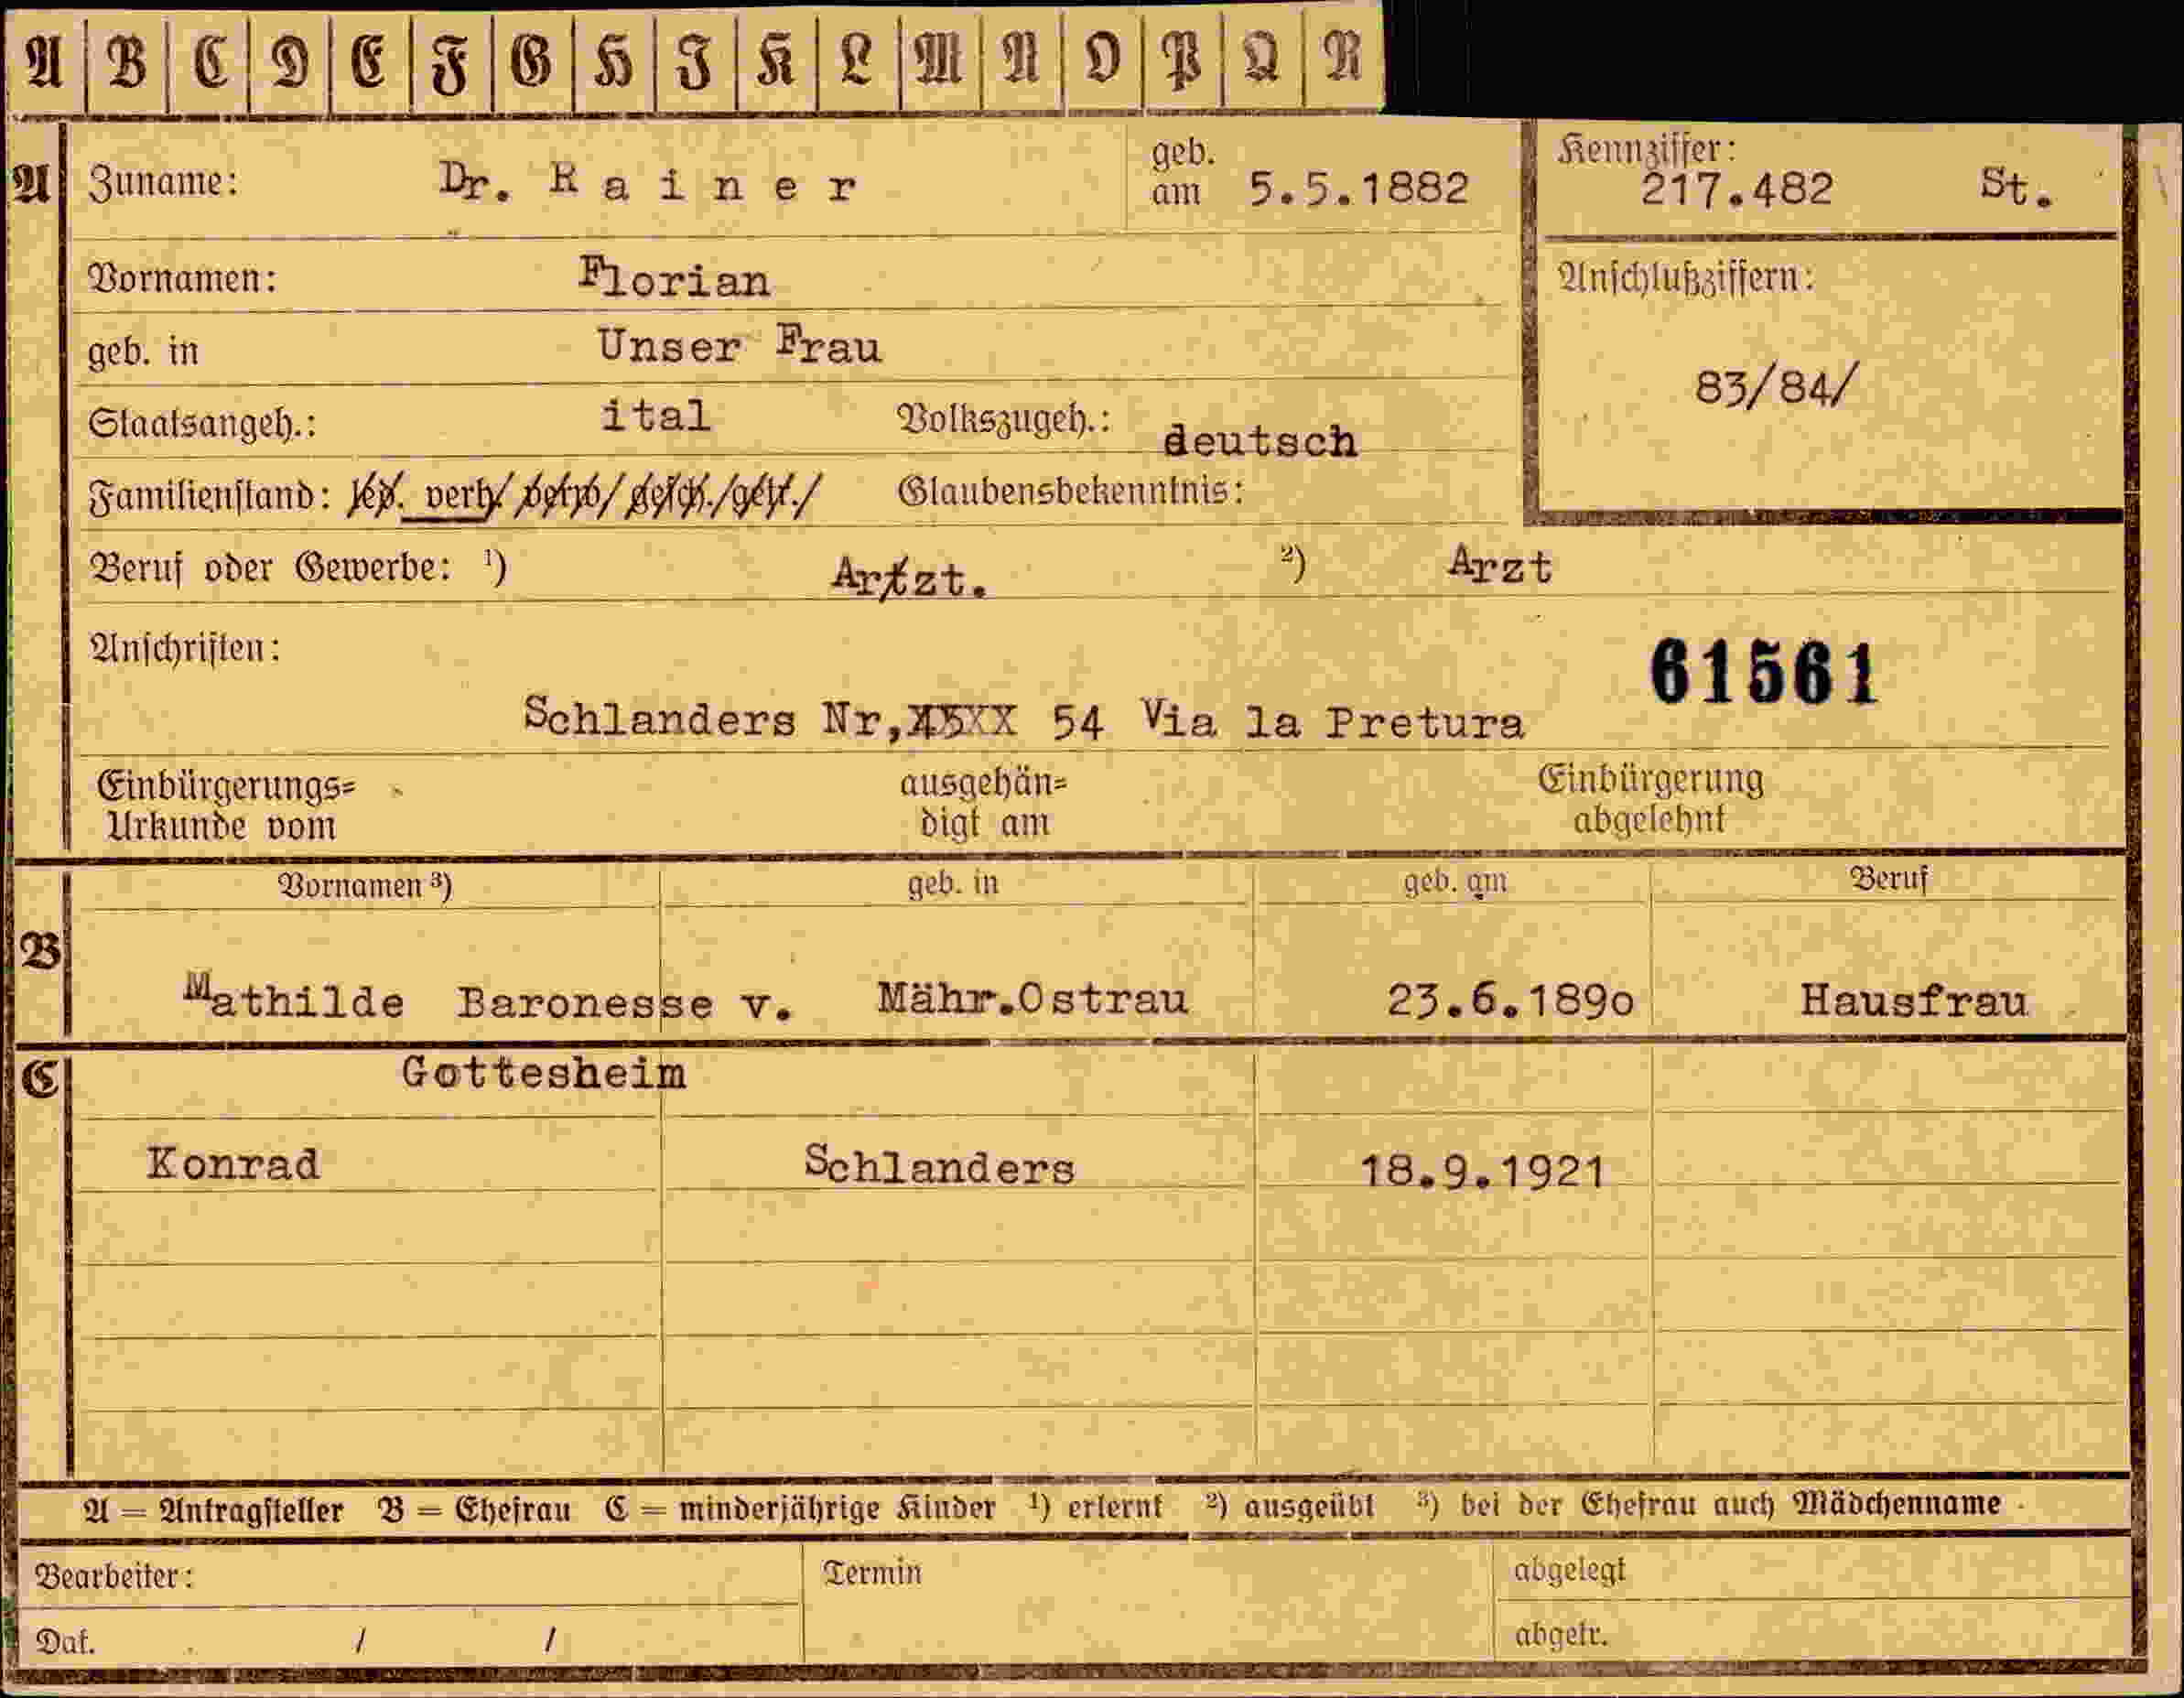 A B C D E F G H I K L M N O P Q R
A Zuname: Dr. Rainer geb. am 5.5.1882 Kennziffer: 217.482 St.
Vornamen: Florian Anschlußziffern:
geb. in Unser Frau
83/84/
Staatsangeh.: ital Volkszugeh.: deutsch
Familienstand: led. verh. verw. gesch./getr./ Glaubensbekenntnis:
Beruf oder Gewerbe: 1) Artzt. 2) Arzt
Anschriften: 61561
Schlanders Nr, 54 Via la Pretura
Einbürgerungs= ausgehän= Einbürgerung
Urkunde vom digt am abgelehnt
Vornamen 3) geb. in geb. am Beruf
B
Mathilde Baronesse v. Mähr.Ostrau 23.6.1890 Hausfrau
C Gottesheim
Konrad Schlanders 18.9.1921
A = Antragsteller B = Ehefrau C = minderjährige Kinder 1) erlernt 2) ausgeübt 3) bei der Ehefrau auch Mädchenname
Bearbeiter: Termin abgelegt
Dat. / / abgetr.